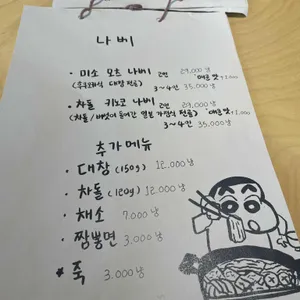 나베
· 미소 모츠 나베 2인 29,000냥
(후쿠오카식 대창전골) 매운맛 +2,000
3~4인 35,000냥
· 차돌 키노코 나베 2인 29,000냥
(차돌/버섯이 들어간 일본 가정식 전골) 매운맛 +2,000
3~4인 35,000냥
추가메뉴
· 대창 (150g) 12,000냥
· 차돌 (120g) 12,000냥
· 채소 7,000냥
· 짬뽕면 3,000냥
* 죽 3,000냥